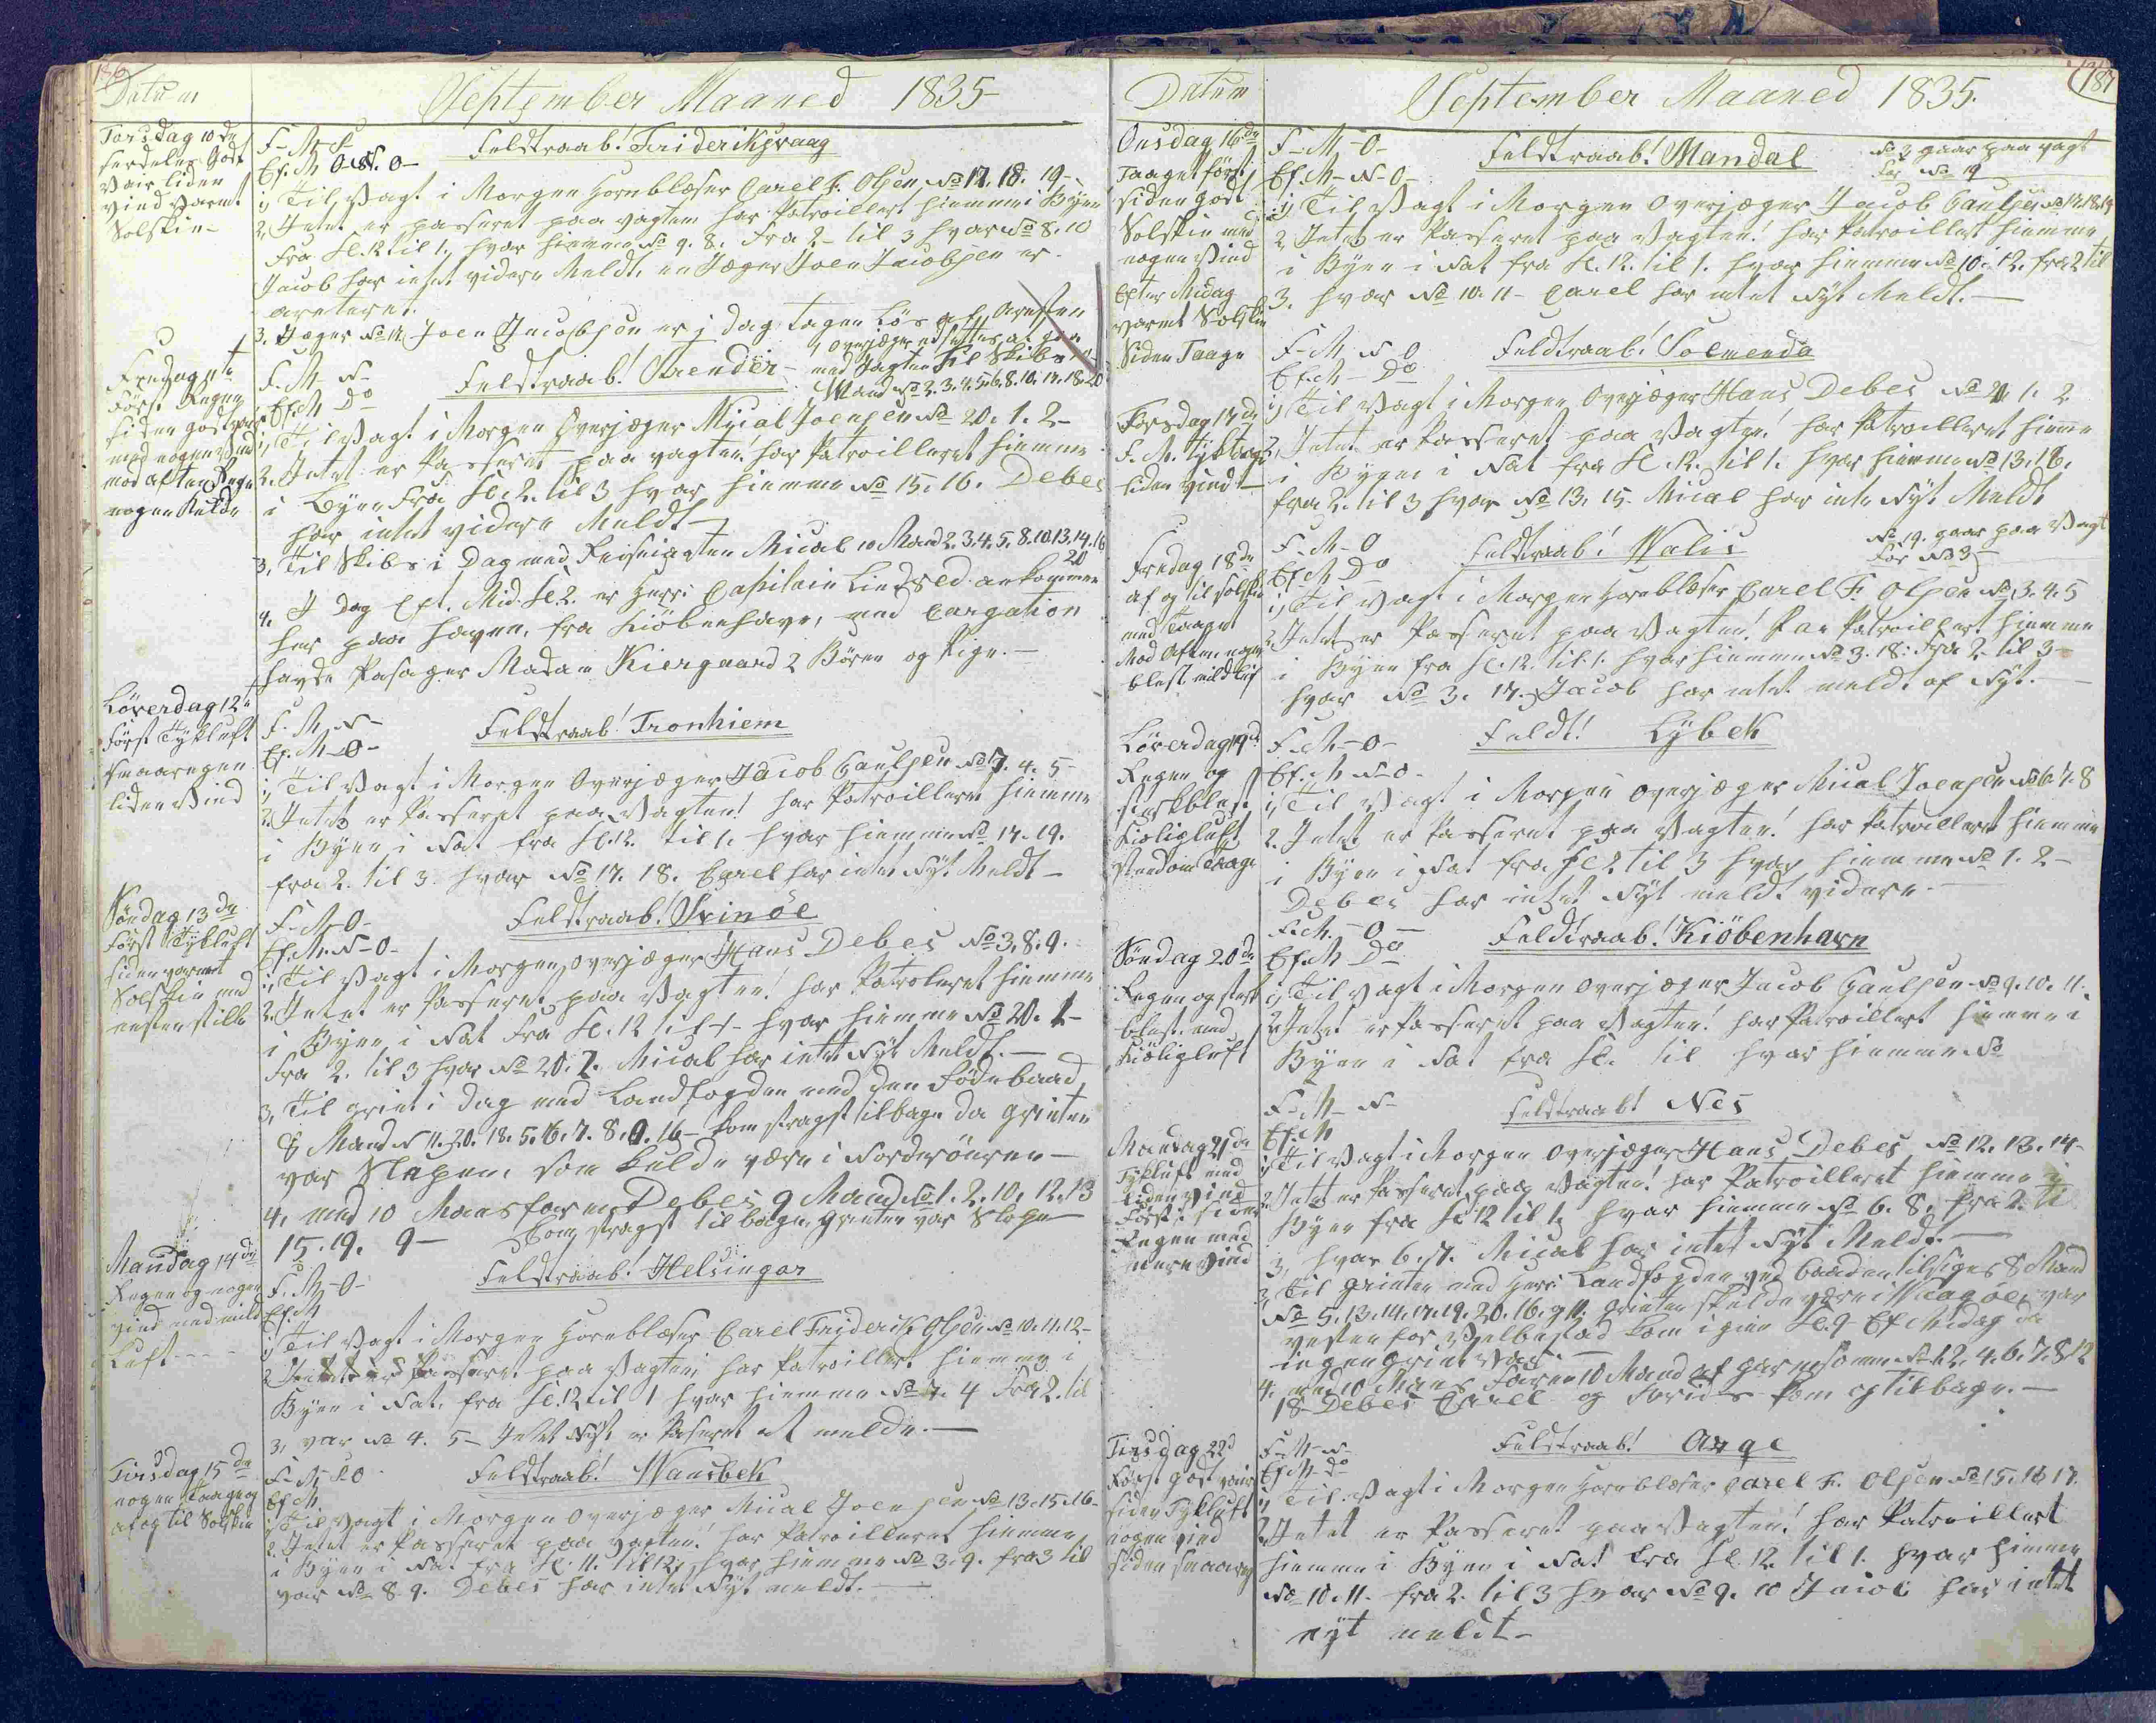 186
Datum
September Maaned 1835
Torsdag 10de
fordelen Godt
Vair liden
Vind varmt
Solskin
F-M S
Ef.M O S. O-
Feldtraab! Friderikshaag
1, Til Vagt i Morgen Hornblæser Carel F. Olsen No 17. 18. 19-
2, Intet er passeret paa vagten har Patroillert hiemme i Byen
fra Kl. 12 til 1, hvor hiemme No 9. 8. fra 2 til 3 hvar No 8. 10
Jacob har intet videre Meldt, en Jæger Joen Jacobsen er
areteret.
3. Jæger No 14 Joen Jacobsen er i dag tagen løs af Aresten
Fredag 11te
Først Regen
siden godt vair
med nogen Vind
mod aften Regn
nogen Kulde
F. M N-
Ef.M Do
Feldtraab! Trender-
med Jagten til Skibs
Mand No 2. 3. 4. 5. 6. 8. 10. 17. 18. 20
1, Til Vagt i Morgen Overjæger Mical Joensen No 20. 1. 2-
2. Intet er Passeret paa vagten! har Patroilleret hiemme
i Byen fra Kl. 2. til 3 hvar hiemme No 15. 16. Debes
har intet videre Meldt
3, Til Skibs i Dag med Mical 10 Mand 2. 3. 4. 5. 8. 10. 13. 14. 16
20
4. I Dag Eft. Mid. Kl. 2. er Herr Capitain Lind ankommen
her paa havnen, fra Kiöbenhavn, med Cargation
havde Pasager Madam Kiergaard 2 Börn og Pige.-
Löverdag 12te
Först Tykluft
smaaregen
liden Vind
F. M. N-
Ef. M-O-
Feldtraab! Tronhiem
1, Til Vagt i Morgen Overjæger Jacob Paulsen No 3. 4. 5-
2. Intet er Passeret paa Vagten! har Patroilleret hiemme
i Byen i Nat fra Kl. 12. til 1. hvar hiemme No 17. 19.
fra 2. til 3. hvar No 17. 18. Carel har intet Nyt Meldt-
Söndag 13de
Först Tykluft
siden varmt
Solskin med
nesten stille
F. M-O-
Ef.M-N-O-
Feldtraab! Svinöe
1, Til Vagt i Morgen, Overjæger Hans Debes No 3. 8. 9.
2. Intet er Passeret paa Vagten! har Patroleret hiemme
i Byen i Nat fra Kl. 12 til 1- hvar hiemme No 20. 1-
fra 2. til 3 hvar No 20. 2. Mical har intet Nyt Meldt.-
3, Til grind i Dag med Landfogden med den Födebaad,
8 Mand N 11. 20. 18. 5. 16. 7. 8. 9. 16- kom stragst tilbage da grinden
var Slepen, som skulde være i Norderöerne-
4, med 10 Mansfar med Debes 9 Mand No 1. 2. 10. 12. 13
15. 19. 9- kom stragst tilbage, grinden var Slepen
Mandag 14de
Regen og nogen
vind med mild
Luft
F. M-O-
Ef.M
Feldtraab! Helsingør
1, Til Vagt i Morgen Hornblæser Carel Friderik Olsen No 10. 11. 12-
2 Intet er Passeret paa Vagten, har Patroillert hiemme i
Byen i Nat, fra Kl. 12 til 1 hvar hiemme No 3. 4 fra 2. til
3, var No 4. 5- Intet Nyt er Paseret at melde.-
Tirsdag 15de
nogen Taage og
af og til Solskin
F-M N O
Ef.M
Feldtraab! Wansbek
1, Til Vagt i Morgen Overjæger Mical Joensen No 13. 15. 16-
2. Intet er Passeret paa Vagten! har Patroilleret hiemme
i Byen i Nat fra Kl. 11. til 12, hvar hiemme No 3. 9. fra 3 til
var No 8 9. Debes har intet Nyt meldt.-
187
Datum
September Maaned 1835.
Onsdag 16de
Taaget först
siden godt
Solskin med
nogen Vind
Efter Midag
varmt Solskin
Siden Taage
F-M-O-
Ef.M-N-O-
Feldtraab! Mandal
No 3 gaar paa vagt
for No 19
1, Til Vagt i Morgen Overjæger Jacob Paulsen No 17. 18. 19
2 Intet er Passeret paa Vagten! har Patroillert hiemme
i Byen i Nat fra Kl. 12. til 1. hvar hiemme No 10. 12. fra 2 til
3. hvar No 10. 11- Carel har intet Nyt Meldt.-
Torsdag 17de
F. M. Tyktaage
liden vindt
F-M N O
Ef.M-Do
Feldtraab! Solmende
1, Til Vagt i Morgen Overjæger Hans Debes No 20 1. 2
2, Intet er Passeret paa Vagten! har Patroilleret hiemme
i Byen i Nat fra Kl. 12. til 1. hvar hiemme No 13. 16.
fra 2. til 3 hvar No 13. 15. Mical har inte Nyt Meldt
Fredag 18de
af og til solskin
med Taaget
Mod Aften nogen
blest mild luft
F-M-O
Ef.M Do
Feldtraab! Walis
No 19. gaar paa Vagt
for No 3
1, Til Vagt i Morgen Hornblæser Carel F. Olsen No 3. 4. 5
2. Intet er Passeret paa Vagten! har Patroillert hiemme
i Byen fra Kl. 12. til 1. hvar hiemme No 3. 18. fra 2 til 3-
hvar No 3. 17. Jacob har intet meldt af Nyt.-
Löverdag 19de
Regen og
sterkblest
Kiöligluft
stundom Taage
F.M-O-
Ef.M N-O-
Feldt! Lybek
1, Til Vagt i Morgen Overjæger Mical Joensen No 6. 7. 8
2. Intet er Passeret paa Vagten! har Patroillert hiemme
i Byen i Nat fra Kl 2 til 3 hvar hiemme No 1. 2-
Debes har intet Nyt meldt videre.-
Söndag 20de
Regen og sterk
blest med
Kiöligluft
F.M.-O-
Ef.M Do
Feldtraab! Kiöbenhavn
1, Til Vagt i Morgen Overjæger Jacob Paulsen No 9. 10. 11.
2 Intet er Passeret paa Vagten! har Patroillert hiemme i
Byen i Nat fra Kl. til hvar hiemme No
Mandag 21de
Tykluft med
liden Vind
Först siden
Regen med
mere Vind
F-M-N-
Ef.M
Feldtraab! Nes
1, Til Vagt i Morgen Overjæger Hans Debes No 12. 13. 14-
2. Intet er Passeret paa Vagten! har Patroilleret hiemme i
Byen fra Kl 12 til 1, hvar hiemme No 6. 8. fra 2. til
3, hvar 6. 7. Mical har intet Nyt Meldt.-
3, Til grinden med Herr Landfogden ved baaden tilsiges 8 Mand
No 5. 13. 14. 17. 19. 20. 16. 9 11. grinden skulde være i Waagöe, var
vesten for Velbestad kom igien Kl. 9 Ef Midag da
ingen grind var.-
4. med 10 Mans Faren 10 Mand af garnisonen No 1. 2. 4. 6. 7. 8 12
18- Debes Carel og kom og tilbage.-
Tirsdag 22d
Först godt vair
siden Tykluft
nogen vind
siden smaareg
F-M-N-
Ef.M do
Feldtraab! Arge
1, Til Vagt i Morgen Hornblæser Carel F. Olsen No 15. 16 17.
2, Intet er Passeret paa Vagten! har Patroillert
hiemme i Byen i Nat fra Kl. 12 til 1. hvar hiemme
No 10. 11. fra 2. til 3 hvar No 9. 10 Jacob har intet
nyt meldt-